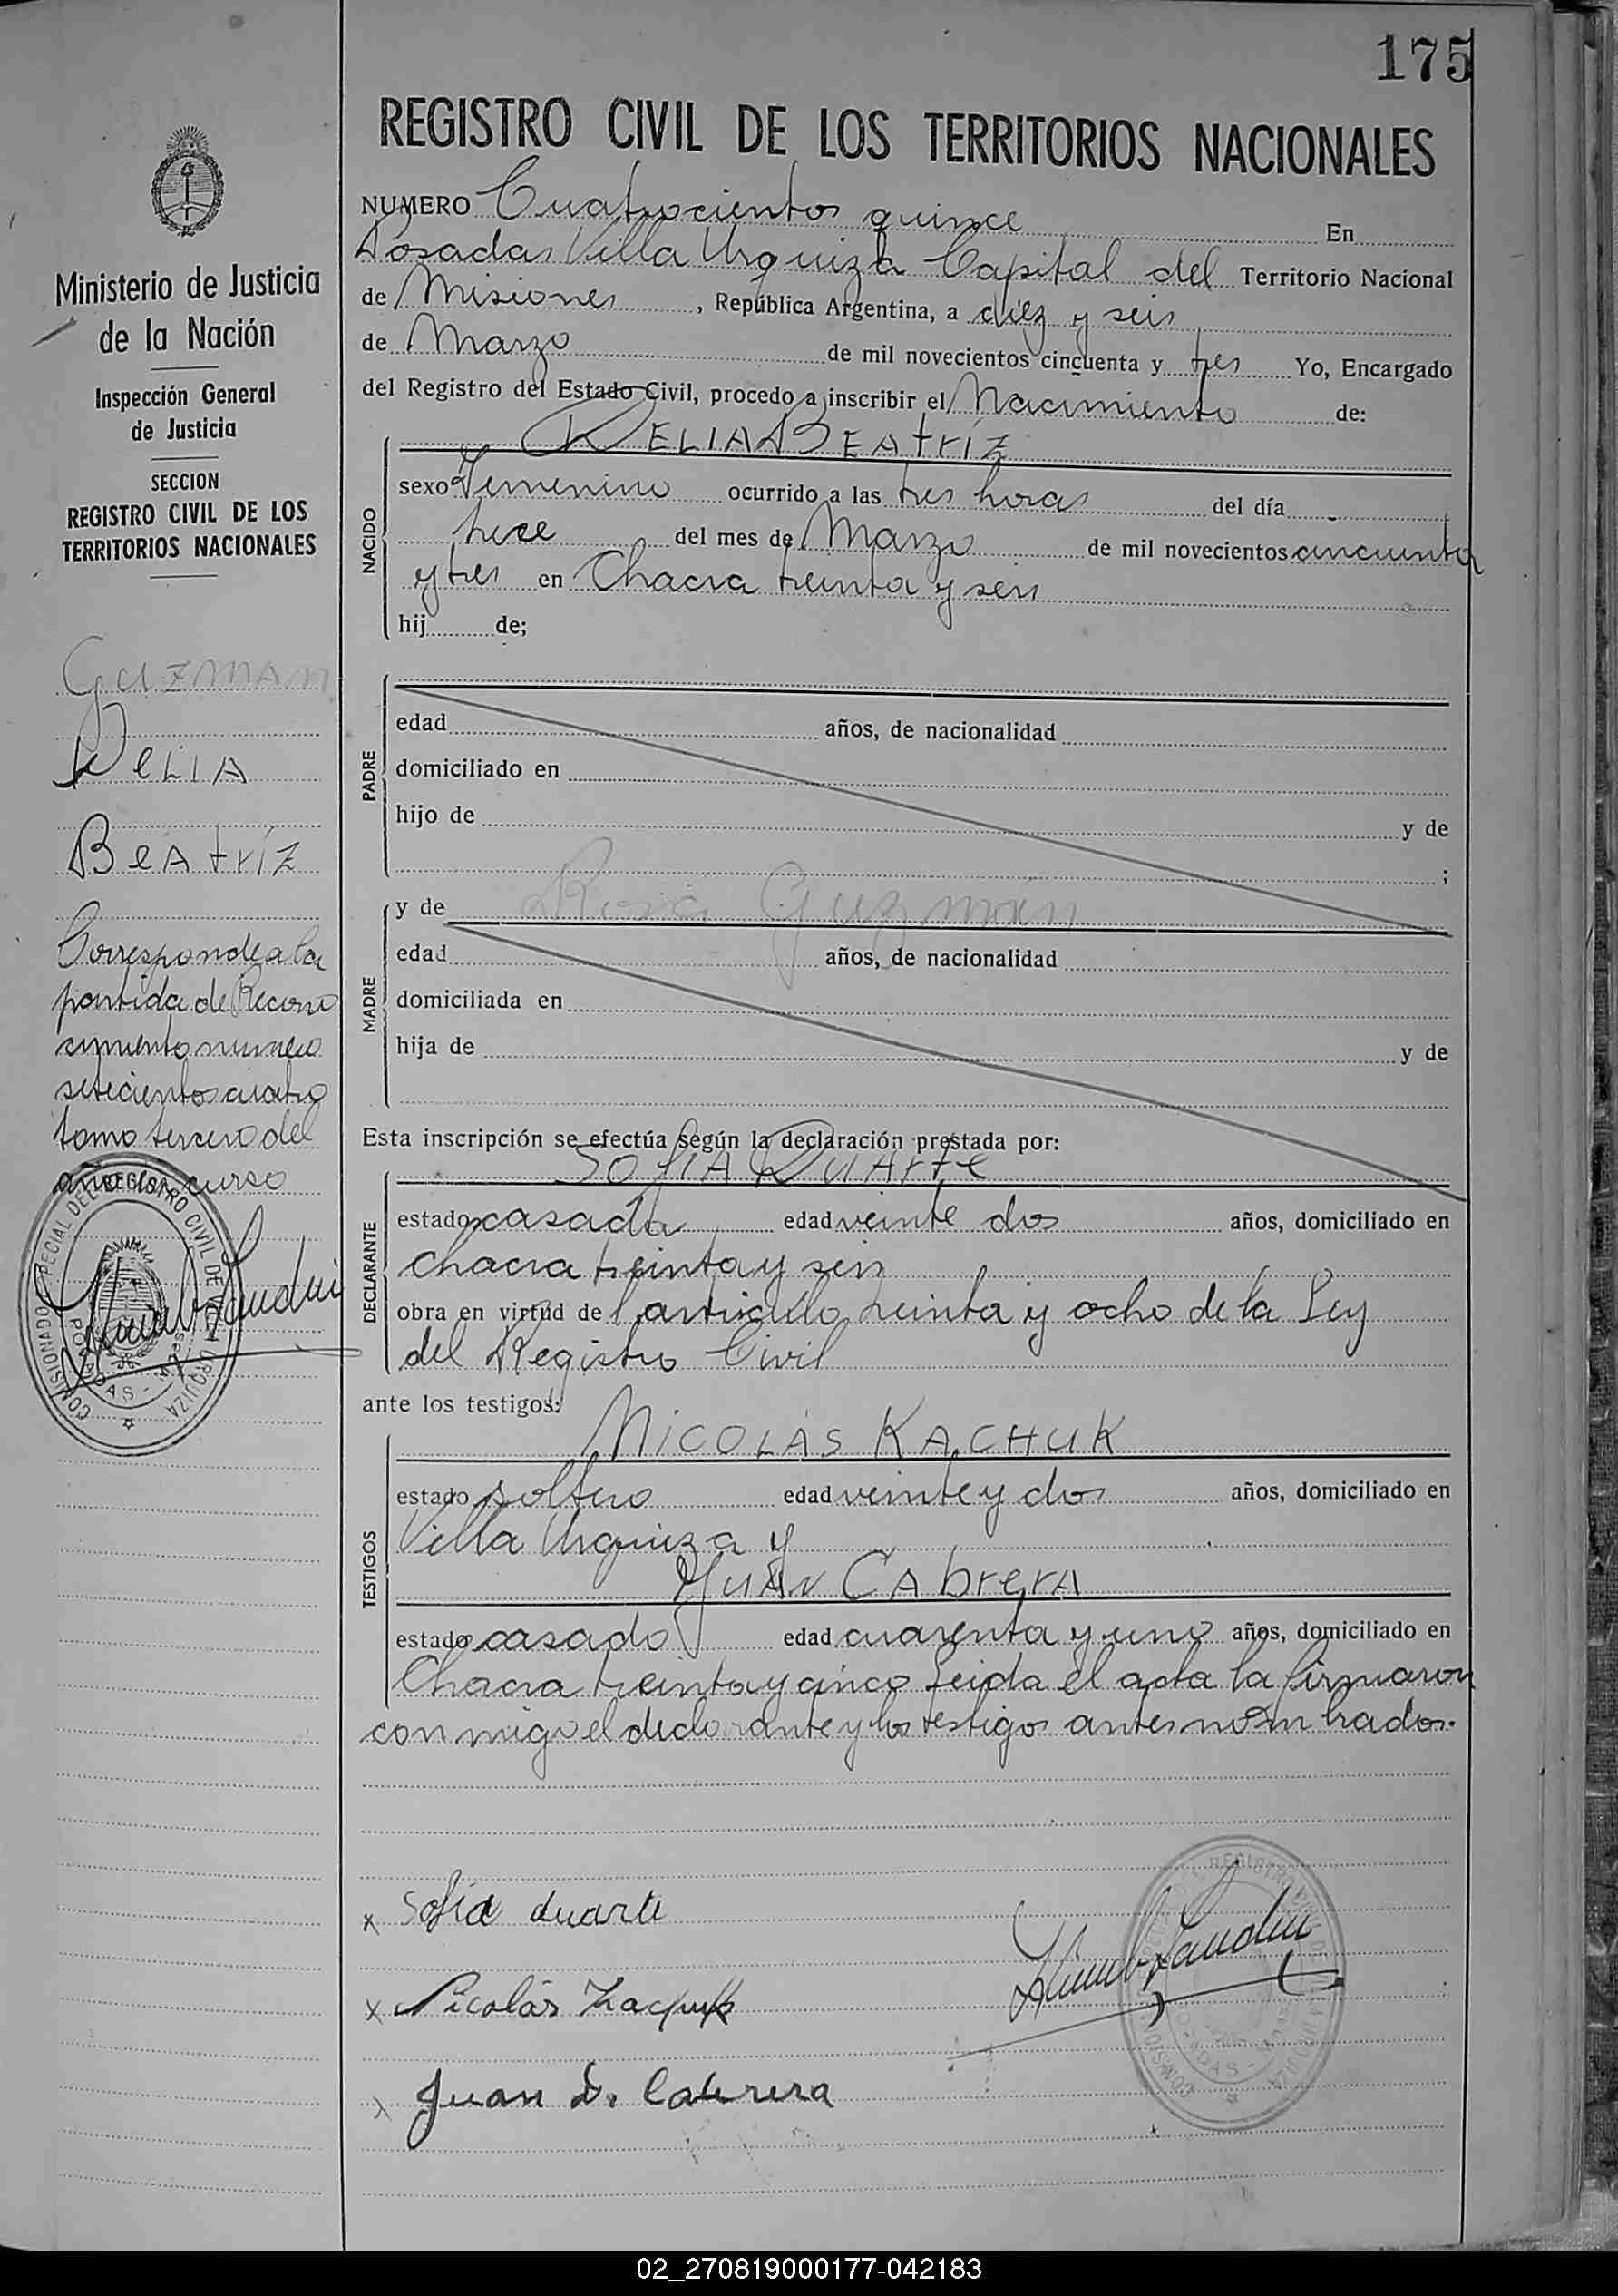 175
REGISTRO CIVIL DE LOS TERRITORIOS NACIONALES
Ministerio de Justicia
de la Nación
Inspección General
de Justicia
SECCION
REGISTRO CIVIL DE LOS
TERRITORIOS NACIONALES
Guzman
Delia
Beatríz
Corresponde a la
partida de Recono
cimiento numero
setecientos cuatro
tomo tercero del
año en curso
COMISIONADO ESPECIAL DEL REGISTRO CIVIL DE VILLA URQUIZA
POSADAS
NUMERO Cuatrocientos quince En
Posadas Villa Urquiza Capital del Territorio Nacional
de Misiones, República Argentina, a diez y seis
de Marzo de mil novecientos cincuenta y tres Yo, Encargado
del Registro del Estado Civil, procedo a inscribir el Nacimiento de:
DELIA BEAtríz
NACIDO
sexo Femenino ocurrido a las tres horas del día
trece del mes de Marzo de mil novecientos cincuenta
y tres en Chacra treinta y seis
hij de;
PADRE
edad años, de nacionalidad
domiciliado en
hijo de y de
;
MADRE
y de Rosa Guzmán
edad años, de nacionalidad
domiciliada en
hija de y de
Esta inscripción se efectúa según la declaración prestada por:
SOfIA DUArte
DECLARANTE
estado casada edad veinte dos años, domiciliado en
chacra treinta y seis
obra en virtud del articulo treinta y ocho de la Ley
del Registro Civil
ante los testigos:
NICOLÁS KACHUK
TESTIGOS
estado soltero edad veinte y dos años, domiciliado en
Villa Urquiza y
JuAN CAbrerA
estado casado edad cuarenta y uno años, domiciliado en
Chacra treinta y cinco Leida el acta la firmaron
conmigo el declarante y los testigos antes nombrados.
x Sofia duarte
x Nicolás
x Juan D. Cabrera
02_270819000177-042183